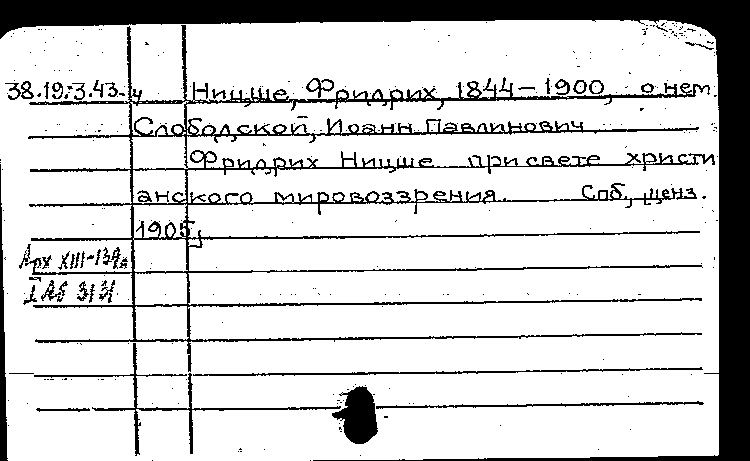 38.19.3.43.-4 Ницше, Фридрих, 1844-1900, о нем.
Слободской, Иоанн Павлинович
Фридрих Ницше при свете христи
анского мировоззрения. Спб., ценз.
1905,
Арх XIII-139а
I Аб 3131